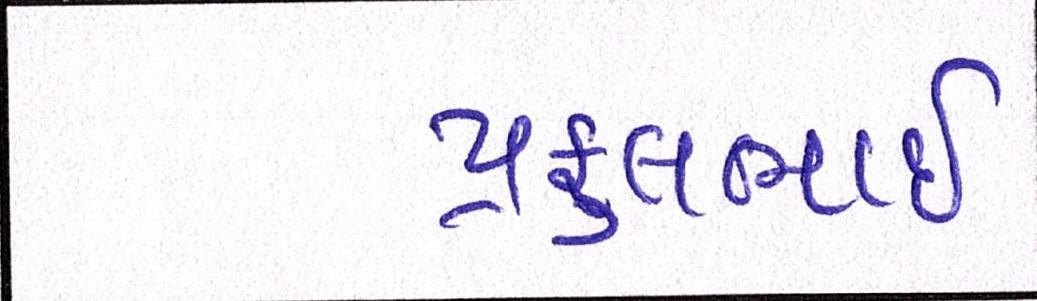 પ્રફુલભાઈ